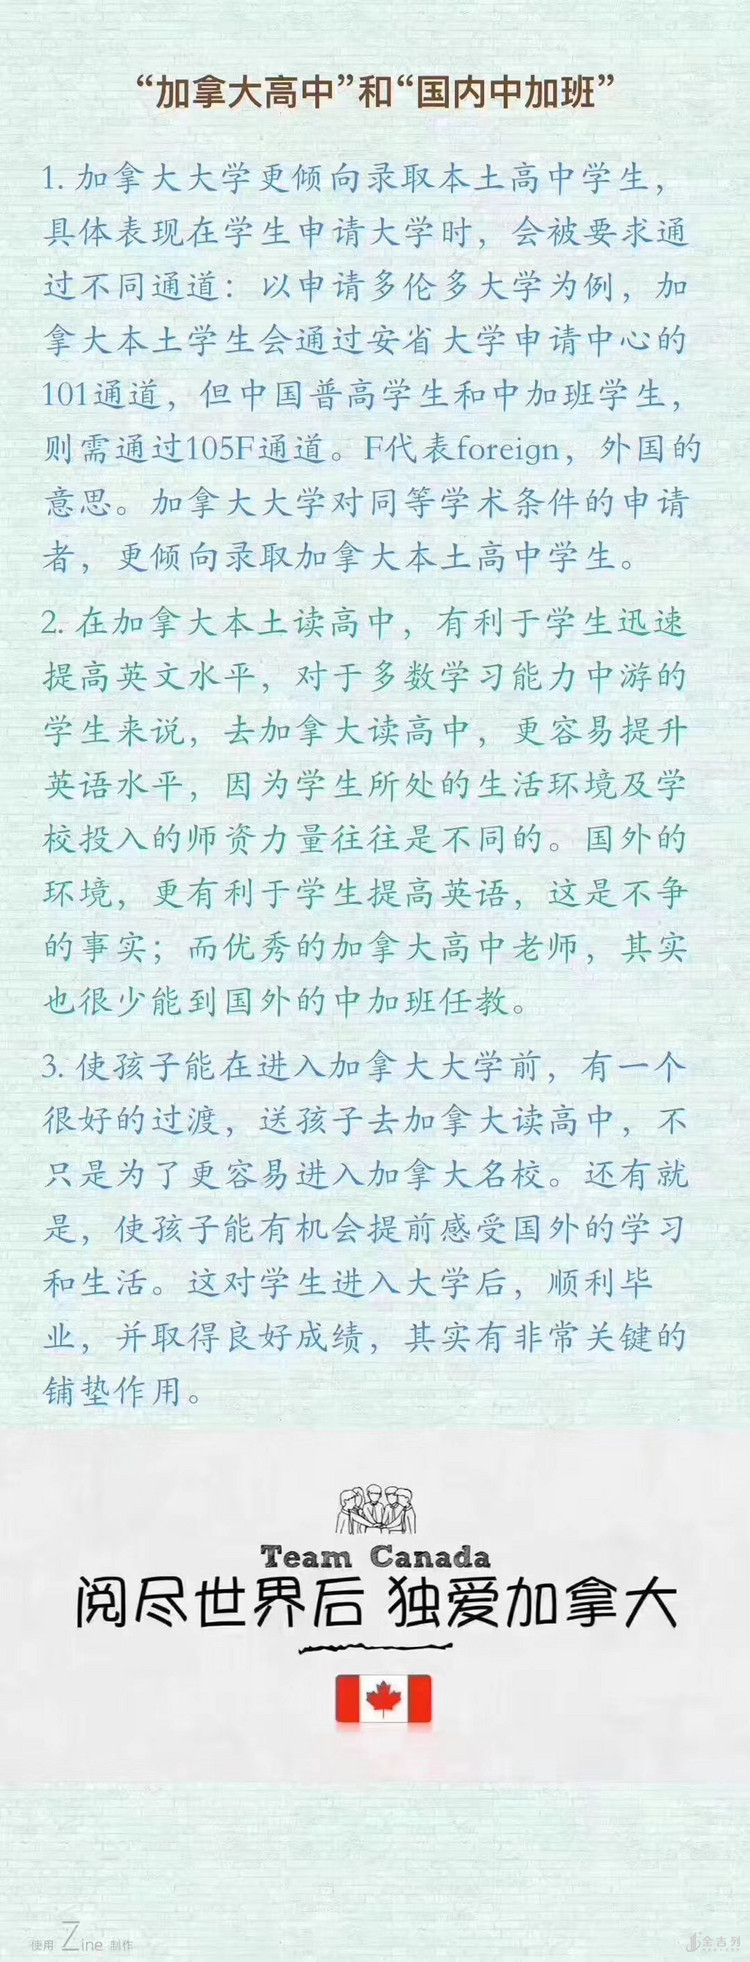 “加拿大高中”和“国内中加班”
1. 加拿大大学更倾向录取本土高中学生，
具体表现在学生申请大学时，会被要求通
过不同通道：以申请多伦多大学为例，加
拿大本土学生会通过安省大学申请中心的
101通道，但中国普高学生和中加班学生，
则需通过105F通道。F代表foreign，外国的
意思。加拿大大学对同等学术条件的申请
者，更倾向录取加拿大本土高中学生。
2. 在加拿大本土读高中，有利于学生迅速
提高英文水平，对于多数学习能力中游的
学生来说，去加拿大读高中，更容易提升
英语水平，因为学生所处的生活环境及学
校投入的师资力量往往是不同的。国外的
环境，更有利于学生提高英语，这是不争
的事实；而优秀的加拿大高中老师，其实
也很少能到国外的中加班任教。
3. 使孩子能在进入加拿大大学前，有一个
很好的过渡，送孩子去加拿大读高中，不
只是为了更容易进入加拿大名校。还有就
是，使孩子能有机会提前感受国外的学习
和生活。这对学生进入大学后，顺利毕
业，并取得良好成绩，其实有非常关键的
铺垫作用。
Team Canada
阅尽世界后 独爱加拿大
使用 Zine 制作
金吉列